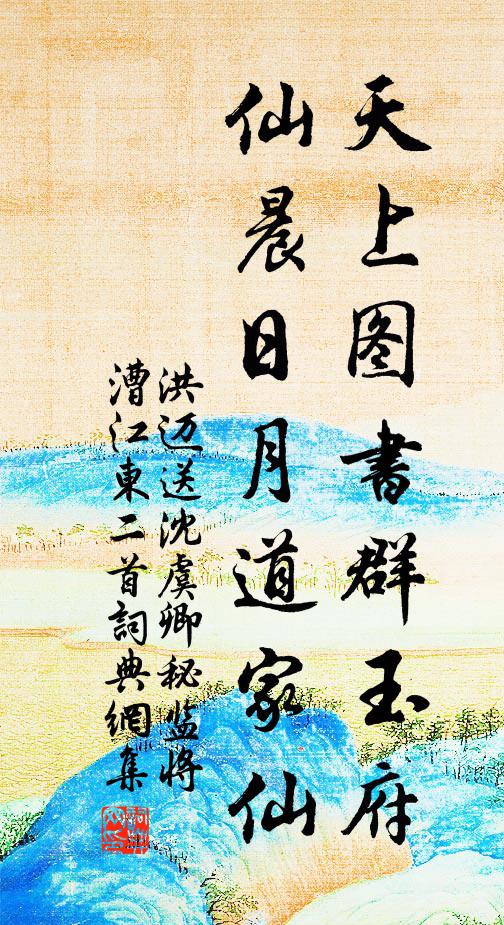 天上图書群玉府
仙晨日月道家仙
洪迈送沈虞卿秘监将
漕江東二首詞典網集